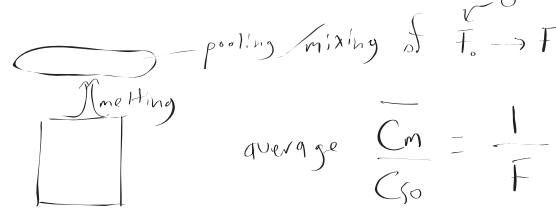 pooling/mixing of F₀ → F
melting
average C̅m̅ / Cso = 1 / F